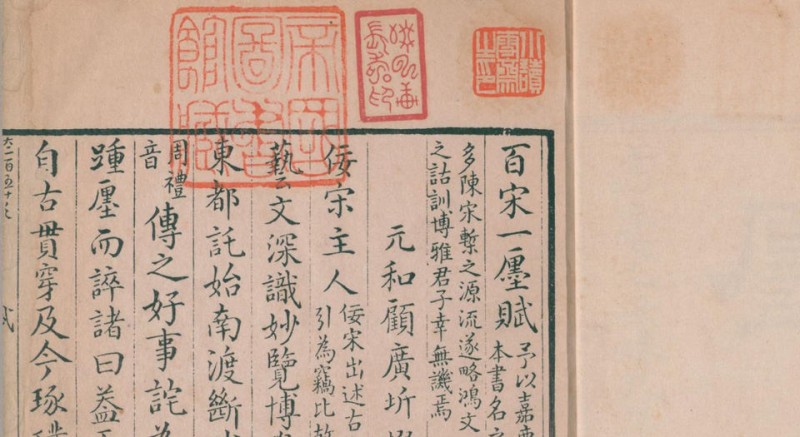 百宋一廛賦
予以嘉
本書名
多陳宋槧之源流遂略鴻文
之詁訓博雅君子幸無譏焉
元和顧廣圻
佞宋主人
佞宋出述古
引為竊比
藝文深識妙覽博
東都託始南渡斷
周禮
音
傳之好事詫
踵廛而誶諸曰蓋
自古貫穿及今琢